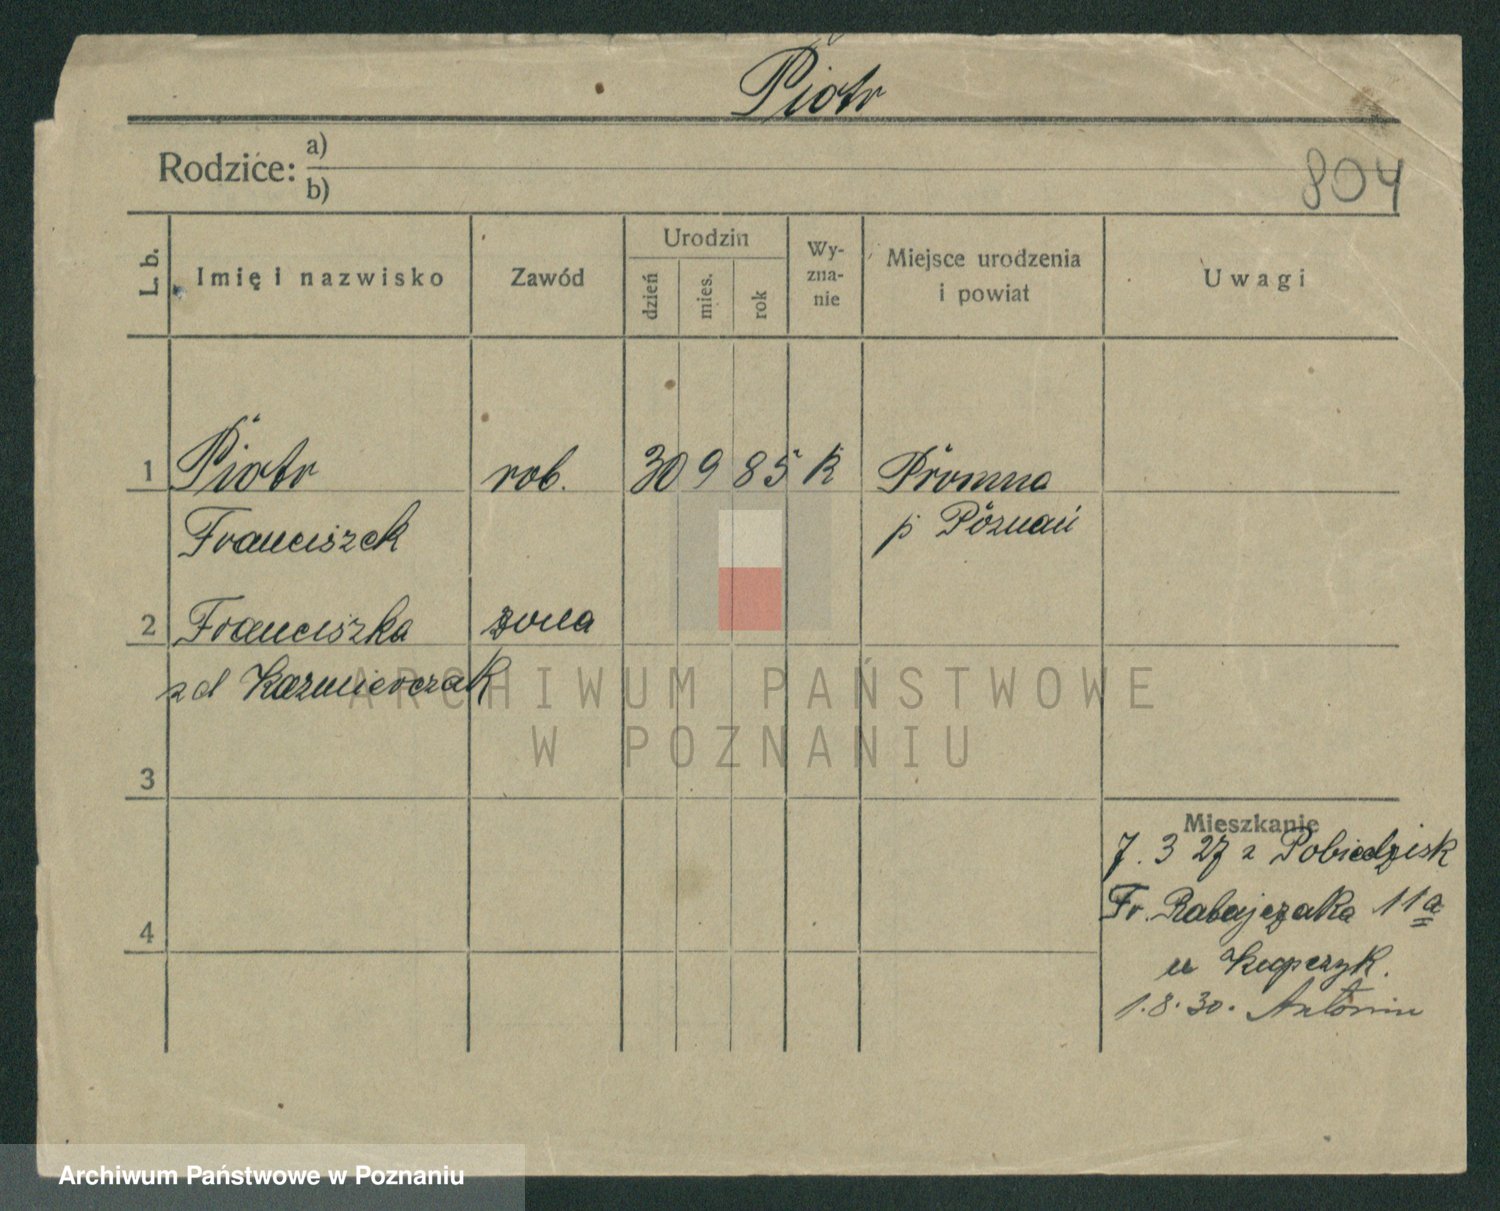 Piotr
Rodzice: a)
b)
804
L. b.
Imię i nazwisko
Zawód
Urodzin
dzień
mies.
rok
Wy-
zna-
nie
Miejsce urodzenia
i powiat
Uwagi
1 Piotr rob. 30 9 85 K Promna
Franciszek p Poznań
2 Franciszka żona
zd Kaźmierczak
3
Mieszkanie
7. 3 27 z Pobiedzisk
Fr. Ratajczaka 11a
4
u Kupczyk.
1.8.30. Antonin
ARCHIWUM PAŃSTWOWE
W POZNANIU
Archiwum Państwowe w Poznaniu